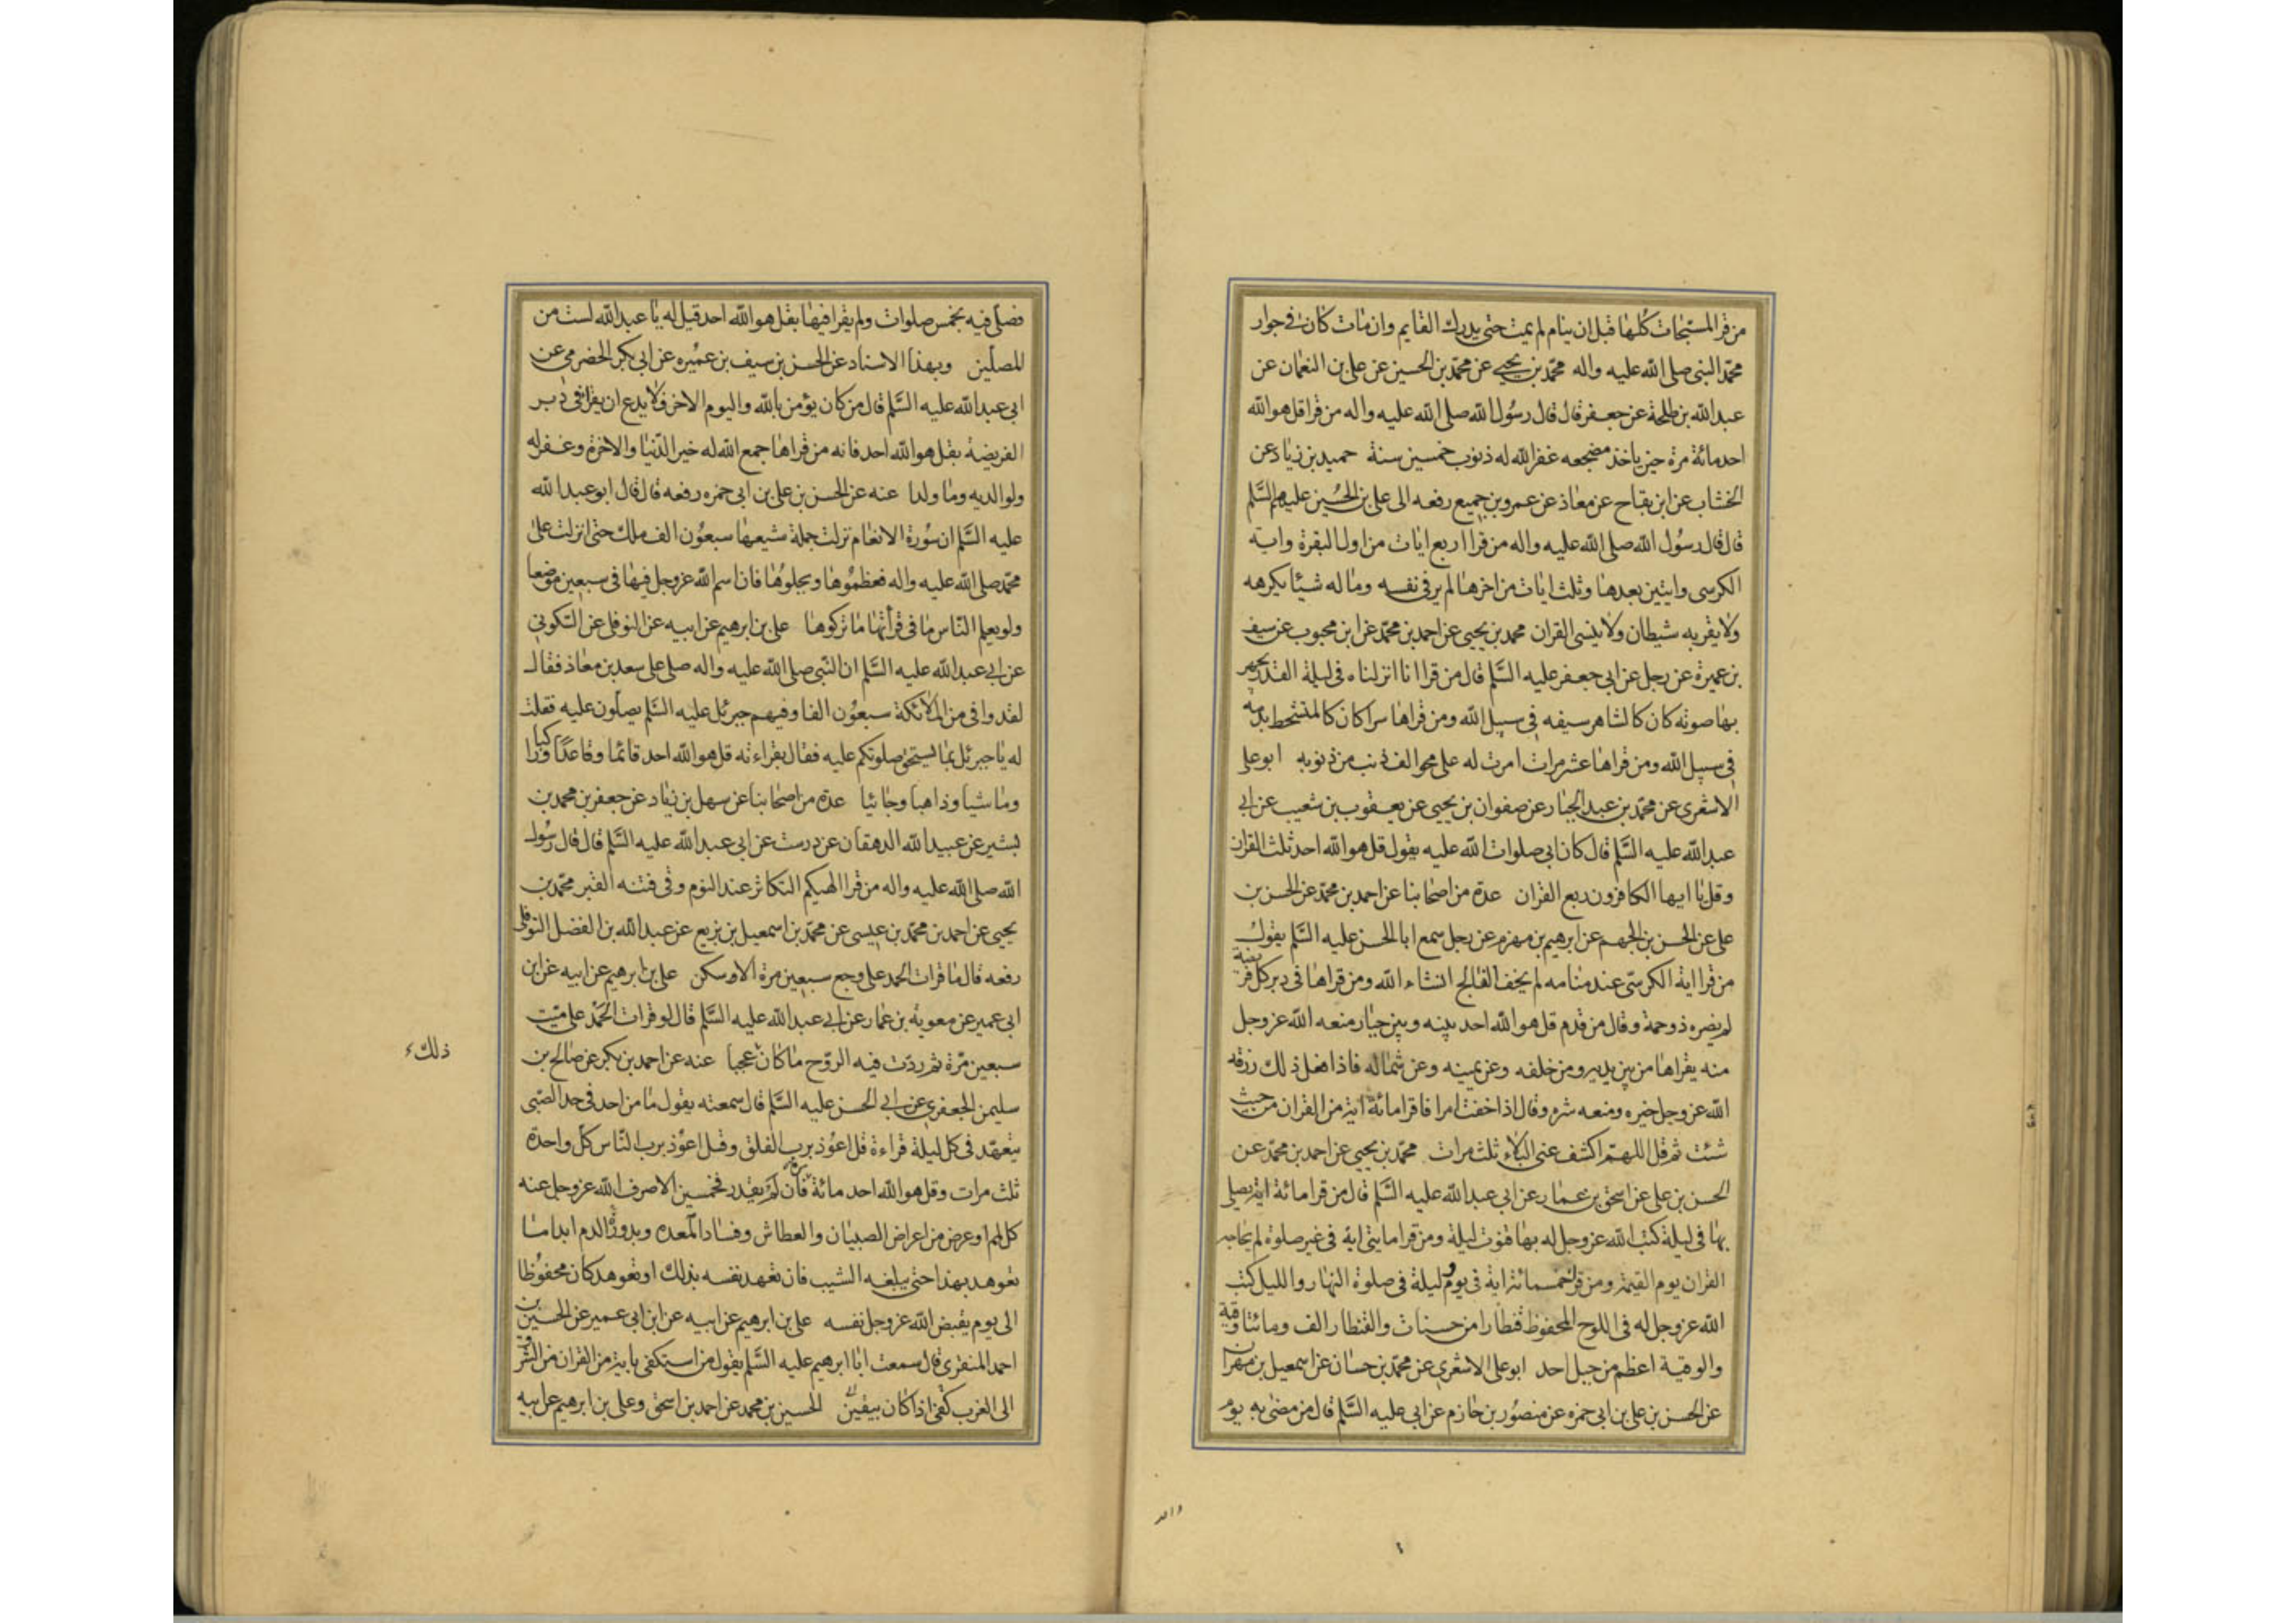 من قرا المسبحات كلها قبل ان ينام لم يمت حتى يدرك القايم وان مات كان في جوار
محمد النبي صلى الله عليه واله محمد بن يحيى عن محمد بن الحسين عن علي بن النعمان عن
عبد الله بن طلحة عن جعفر قال قال رسول الله صلى الله عليه واله من قرا قل هو الله
احد مائة مرة حين ياخذ مضجعه غفر الله له ذنوب خمسين سنة حميد بن زياد عن
الخشاب عن ابن بقاح عن معاذ عن عمرو بن جميع رفعه الى علي بن الحسين عليهم السلم
قال قال رسول الله صلى الله عليه واله من قرا اربع ايات من اول البقرة واية
الكرسي وايتين بعدها وثلث ايات من اخرها لم ير في نفسه وماله شيئا يكرهه
ولا يقربه شيطان ولا ينسى القران محمد بن يحيى عن احمد بن محمد عن ابن محبوب عن سيف
بن عميرة عن رجل عن ابي جعفر عليه السلم قال من قرا انا انزلناه في ليلة القدر يجهر
بها صوته كان كالشاهر سيفه في سبيل الله ومن قراها سرا كان كالمتشحط بدمه
في سبيل الله ومن قراها عشر مرات امرت له على محو الف ذنب من ذنوبه ابو علي
الاشعري عن محمد بن عبد الجبار عن صفوان بن يحيى عن يعقوب بن شعيب عن ابي
عبد الله عليه السلم قال كان ابي صلوات الله عليه يقول قل هو الله احد ثلث القران
وقل يا ايها الكافرون ربع القران عدة من اصحابنا عن احمد بن محمد عن الحسن بن
علي عن الحسن بن الجهم عن ابرهيم بن مهزم عن رجل سمع ابا الحسن عليه السلم يقول
من قرا اية الكرسي عند منامه لم يخف الفالج انشاء الله ومن قراها في دبر كل فريضة
لم يضره ذو حمة وقال من قدم قل هو الله احد بينه وبين جبار منعه الله عز وجل
منه يقراها من بين يديه ومن خلفه وعن يمينه وعن شماله فاذا فعل ذلك رزقه
الله عز وجل خيره ومنعه شره وقال اذا خفت امرا فاقرا مائة اية من القران من حيث
شئت ثم قل اللهم اكشف عني البلاء ثلث مرات محمد بن يحيى عن احمد بن محمد عن
الحسن بن علي عن اسحق بن عمار عن ابي عبد الله عليه السلم قال من قرا مائة اية يصلي
بها في ليلة كتب الله عز وجل له بها قنوت ليلة ومن قرا مايتي اية في غير صلوة لم يحاجه
القران يوم القيمة ومن قرا خمسمائة اية في يوم وليلة في صلوة النهار والليل كتب
الله عز وجل له في اللوح المحفوظ قنطارا من حسنات والقنطار الف ومائتا وقية
والوقية اعظم من جبل احد ابو علي الاشعري عن محمد بن حسان عن اسمعيل بن مهران
عن الحسن بن علي بن ابي حمزه عن منصور بن حازم عن ابي عليه السلم قال من مضى به يوم
فصلى فيه بخمس صلوات ولم يقرا فيها بقل هو الله احد قيل له يا عبد الله لست من
المصلين وبهذا الاسناد عن الحسن بن سيف بن عميره عن ابي بكر الحضرمي عن
ابي عبد الله عليه السلم قال من كان يؤمن بالله واليوم الاخر فلا يدع ان يقرا في دبر
الفريضة بقل هو الله احد فانه من قراها جمع الله له خير الدنيا والاخرة وغفر له
ولوالديه وما ولدا عنه عن الحسن بن علي بن ابي حمزه رفعه قال قال ابو عبد الله
عليه السلم ان سورة الانعام نزلت جملة شيعها سبعون الف ملك حتى انزلت على
محمد صلى الله عليه واله فعظموها وبجلوها فان اسم الله عز وجل فيها في سبعين موضعا
ولو يعلم الناس ما في قرأتها ما تركوها علي بن ابرهيم عن ابيه عن النوفلي عن السكوني
عن ابي عبد الله عليه السلم ان النبي صلى الله عليه واله صلى على سعد بن معاذ فقال
لقد وافى من الملائكة سبعون الفا وفيهم جبرئل عليه السلم يصلون عليه فقلت
له يا جبرئل بما يستحق صلوتكم عليه فقال بقراءته قل هو الله احد قائما وقاعدا وراكبا
وماشيا وذاهبا وجائيا عدة من اصحابنا عن سهل بن زياد عن جعفر بن محمد بن
بشير عن عبيد الله الدهقان عن درست عن ابي عبد الله عليه السلم قال قال رسول
الله صلى الله عليه واله من قرا الهيكم التكاثر عند النوم وقي فتنه القبر محمد بن
يحيى عن احمد بن محمد بن عيسى عن محمد بن اسمعيل بن بزيع عن عبد الله بن الفضل النوفلي
رفعه قال ما قرات الحمد على وجع سبعين مرة الا وسكن علي بن ابرهيم عن ابيه عن ابن
ابي عمير عن معوية بن عمار عن ابي عبد الله عليه السلم قال لو قرات الحمد على ميت
سبعين مرة ثم ردت فيه الروح ما كان عجبا عنه عن احمد بن بكر عن صالح بن
ذلك
سليمن الجعفري عن ابي الحسن عليه السلم قال سمعته يقول ما من احد في حد الصبى
يتعهد في كل ليلة قراءة قل اعوذ برب الفلق وقل اعوذ برب الناس كل واحدة
ثلث مرات وقل هو الله احد مائة مرة فان لم يقدر فخمسين الا صرف الله عز وجل عنه
كل لمم او عرض من اعراض الصبيان والعطاش وفساد المعده وبدور الدم ابدا ما
تعوهد بهذا حتى يبلغه الشيب فان تعهد نفسه بذلك او تعوهد كان محفوظا
الى يوم يقبض الله عز وجل نفسه علي بن ابرهيم عن ابيه عن ابن ابي عمير عن الحسين بن
احمد المنقري قال سمعت ابا ابرهيم عليه السلم يقول من استكفى باية من القران من الشرق
الى الغرب كفى اذا كان بيقين الحسين بن محمد عن احمد بن اسحق وعلي بن ابرهيم عن ابيه